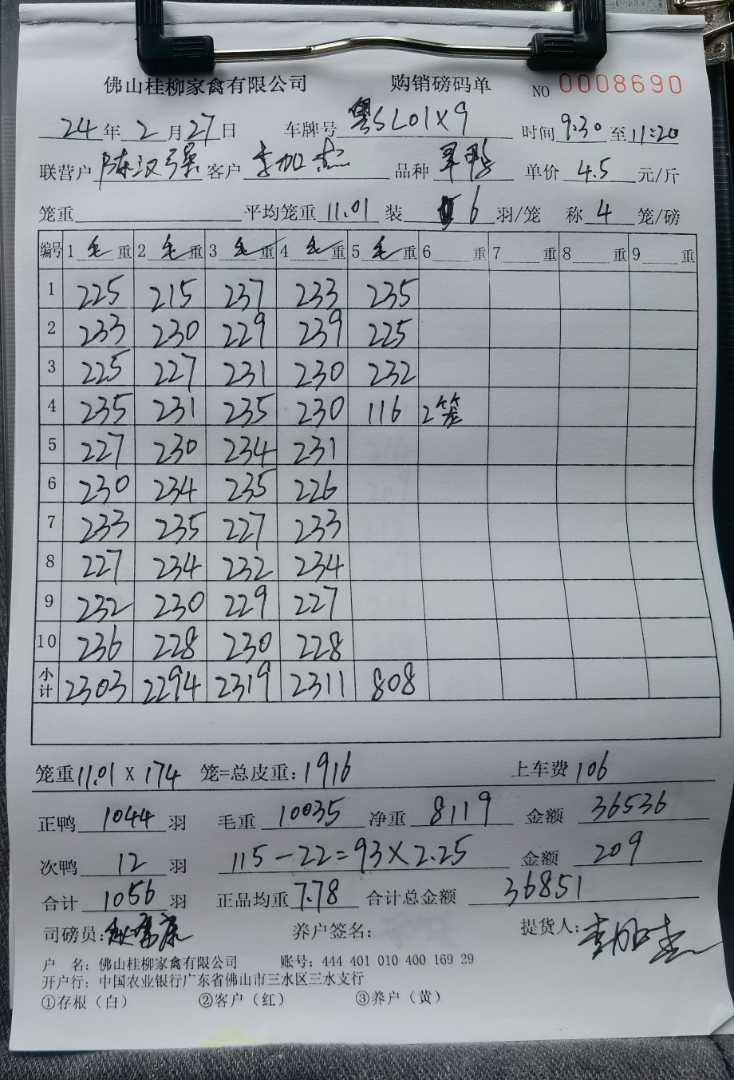 佛山桂柳家禽有限公司 购销磅码单 NO 0008690
24年2月27日 车牌号 粤SL01X9 时间9:30至11:20
联营户 陈汉强 客户 李加杰 品种 单价 4.5 元/斤
笼重 平均笼重 11.01 装 6 羽/笼 称 4 笼/磅
编号 1 毛 重 2 毛 重 3 毛 重 4 毛 重 5 毛 重 6 重 7 重 8 重 9 重
1 225 215 237 233 235
2 233 230 229 239 225
3 225 227 231 230 232
4 235 231 235 230 116 2笼
5 227 230 234 231
6 230 234 235 226
7 233 235 227 233
8 227 234 232 234
9 232 230 229 227
10 236 228 230 228
小计 2303 2294 2319 2311 808
笼重11.01 X 174 笼=总皮重:1916 上车费 106
正鸭 1044 羽 毛重 10035 净重 8119 金额 36536
次鸭 12 羽 115-22=93X2.25 金额 209
合计 1056 羽 正品均重 7.78 合计总金额 36851
司磅员: 养户签名: 提货人:李加杰
户 名:佛山桂柳家禽有限公司 账号:444 401 010 400 169 29
开户行:中国农业银行广东省佛山市三水区三水支行
①存根(白) ②客户(红) ③养户(黄)